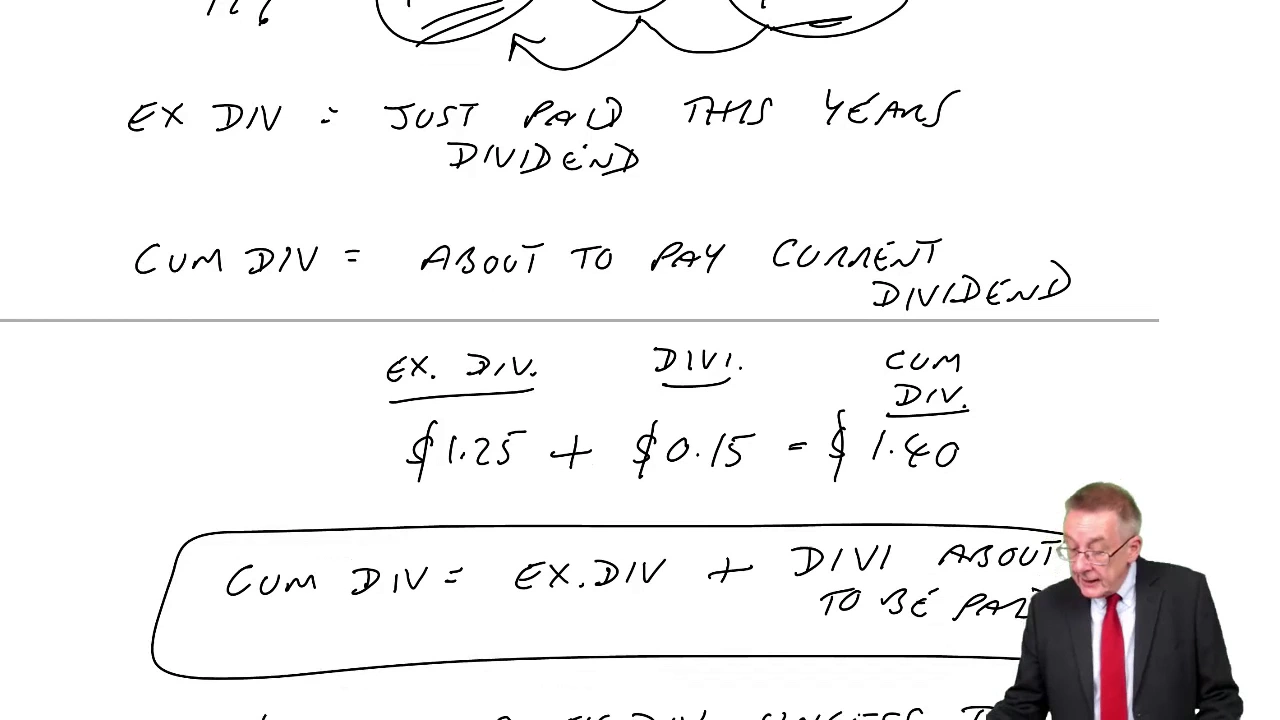 EX DIV = JUST PAID THIS YEARS
DIVIDEND
CUM DIV = ABOUT TO PAY CURRENT
DIVIDEND
EX. DIV. DIVI. CUM
DIV.
$1.25 + $0.15 = $1.40
CUM DIV = EX.DIV + DIVI ABOUT
TO BE PAID